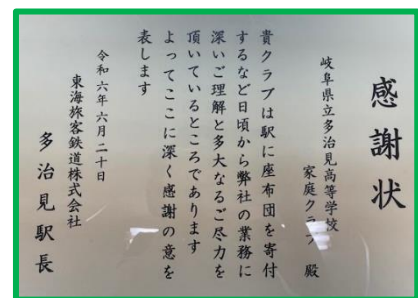 感謝状
岐阜県立多治見高等学校
家庭クラブ 殿
貴クラブは駅に座布団を寄付
するなど日頃から弊社の業務に
深いご理解と多大なるご尽力を
頂いているところであります
よってここに深く感謝の意を
表します
令和六年六月二十日
東海旅客鉄道株式会社
多治見駅長